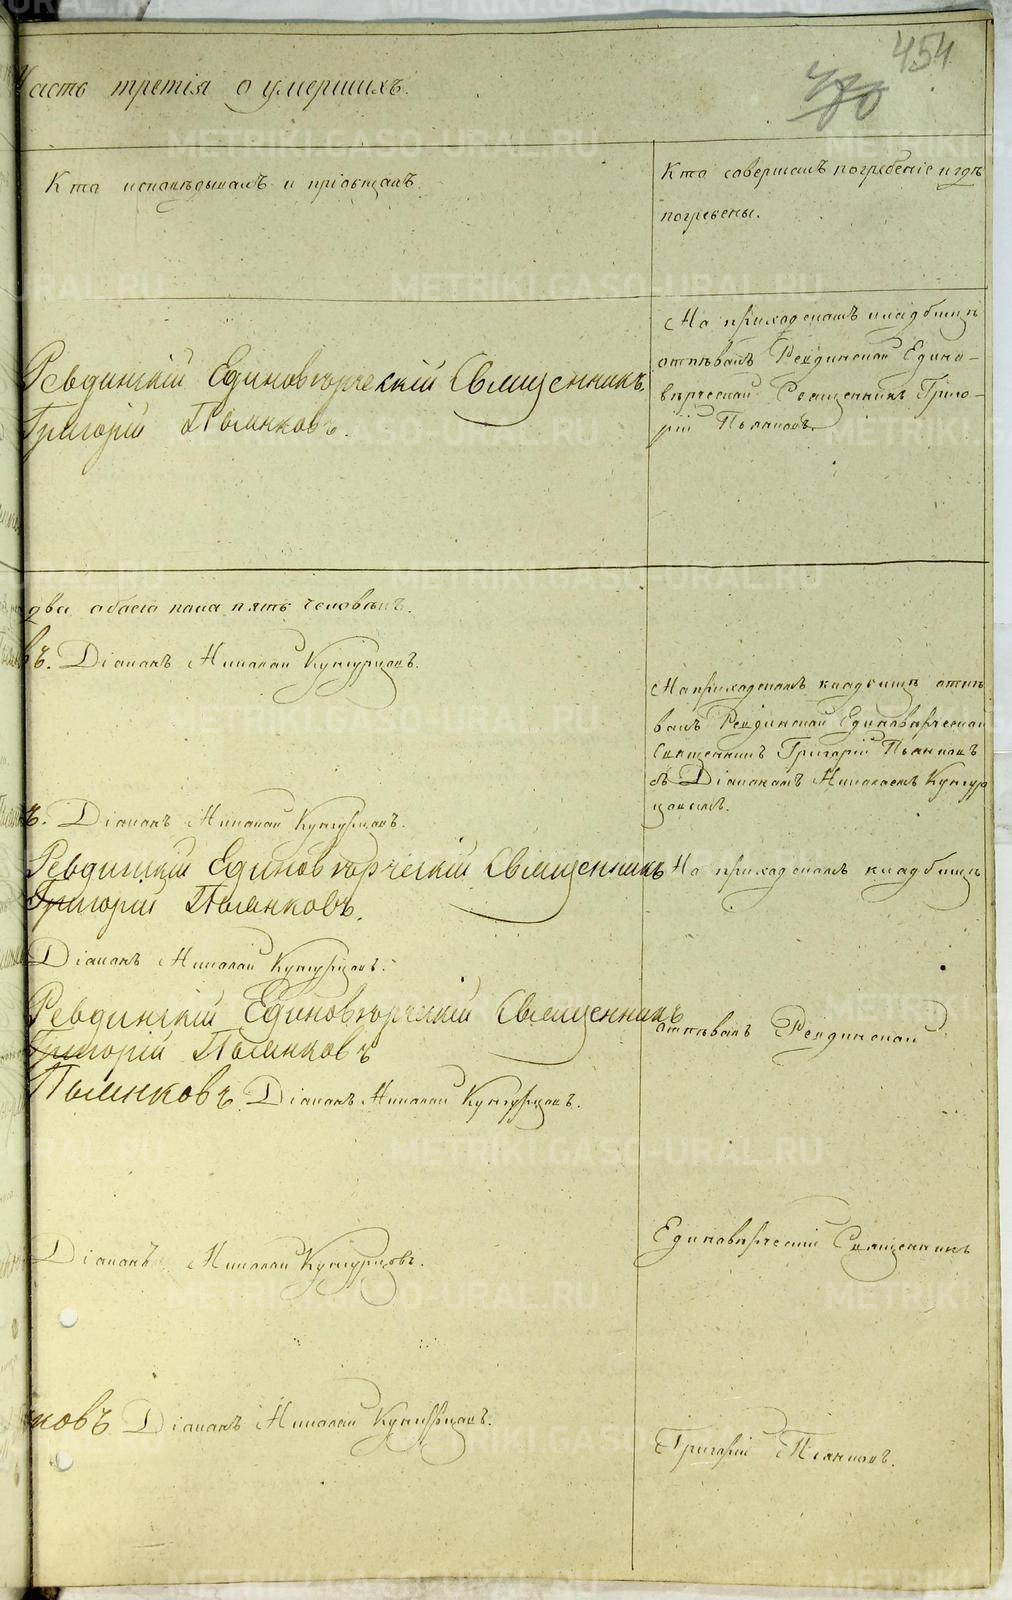 454
480
Часть третія о умершихъ.
Кто исповѣдывалъ и пріобщалъ.
Кто совершалъ погребеніе и гдѣ
погребены.
На приходскомъ кладбищѣ
отпѣвалъ Ревдинской Едино-
вѣрческой Священникъ Григо-
рій Пьянковъ.
Ревдинскій Единовѣрческій Священникъ
Григорій Пьянковъ.
два обоего пола пять человѣкъ.
въ. Діаконъ Николай Кунгурцовъ.
На приходскомъ кладбищѣ отпѣ
валъ Ревдинской Единовѣрческой
Священникъ Григорій Пьянковъ
съ Діакономъ Николаемъ Кунгур
цовымъ.
ъ. Діаконъ Николай Кунгурцовъ.
Ревдинскій Единовѣрческій Священникъ
Григорій Пьянковъ.
На приходскомъ кладбищѣ
Діаконъ Николай Кунгурцовъ.
Ревдинскій Единовѣрческій Священникъ
Григорій Пьянковъ
отпѣвалъ Ревдинской
Пьянковъ. Діаконъ Николай Кунгурцовъ.
Единовѣрческій Священникъ
Діаконъ Николай Кунгурцовъ.
ковъ Діаконъ Николай Кунгурцовъ.
Григорій Пьянковъ.
METRIKI.GASO-URAL.RU